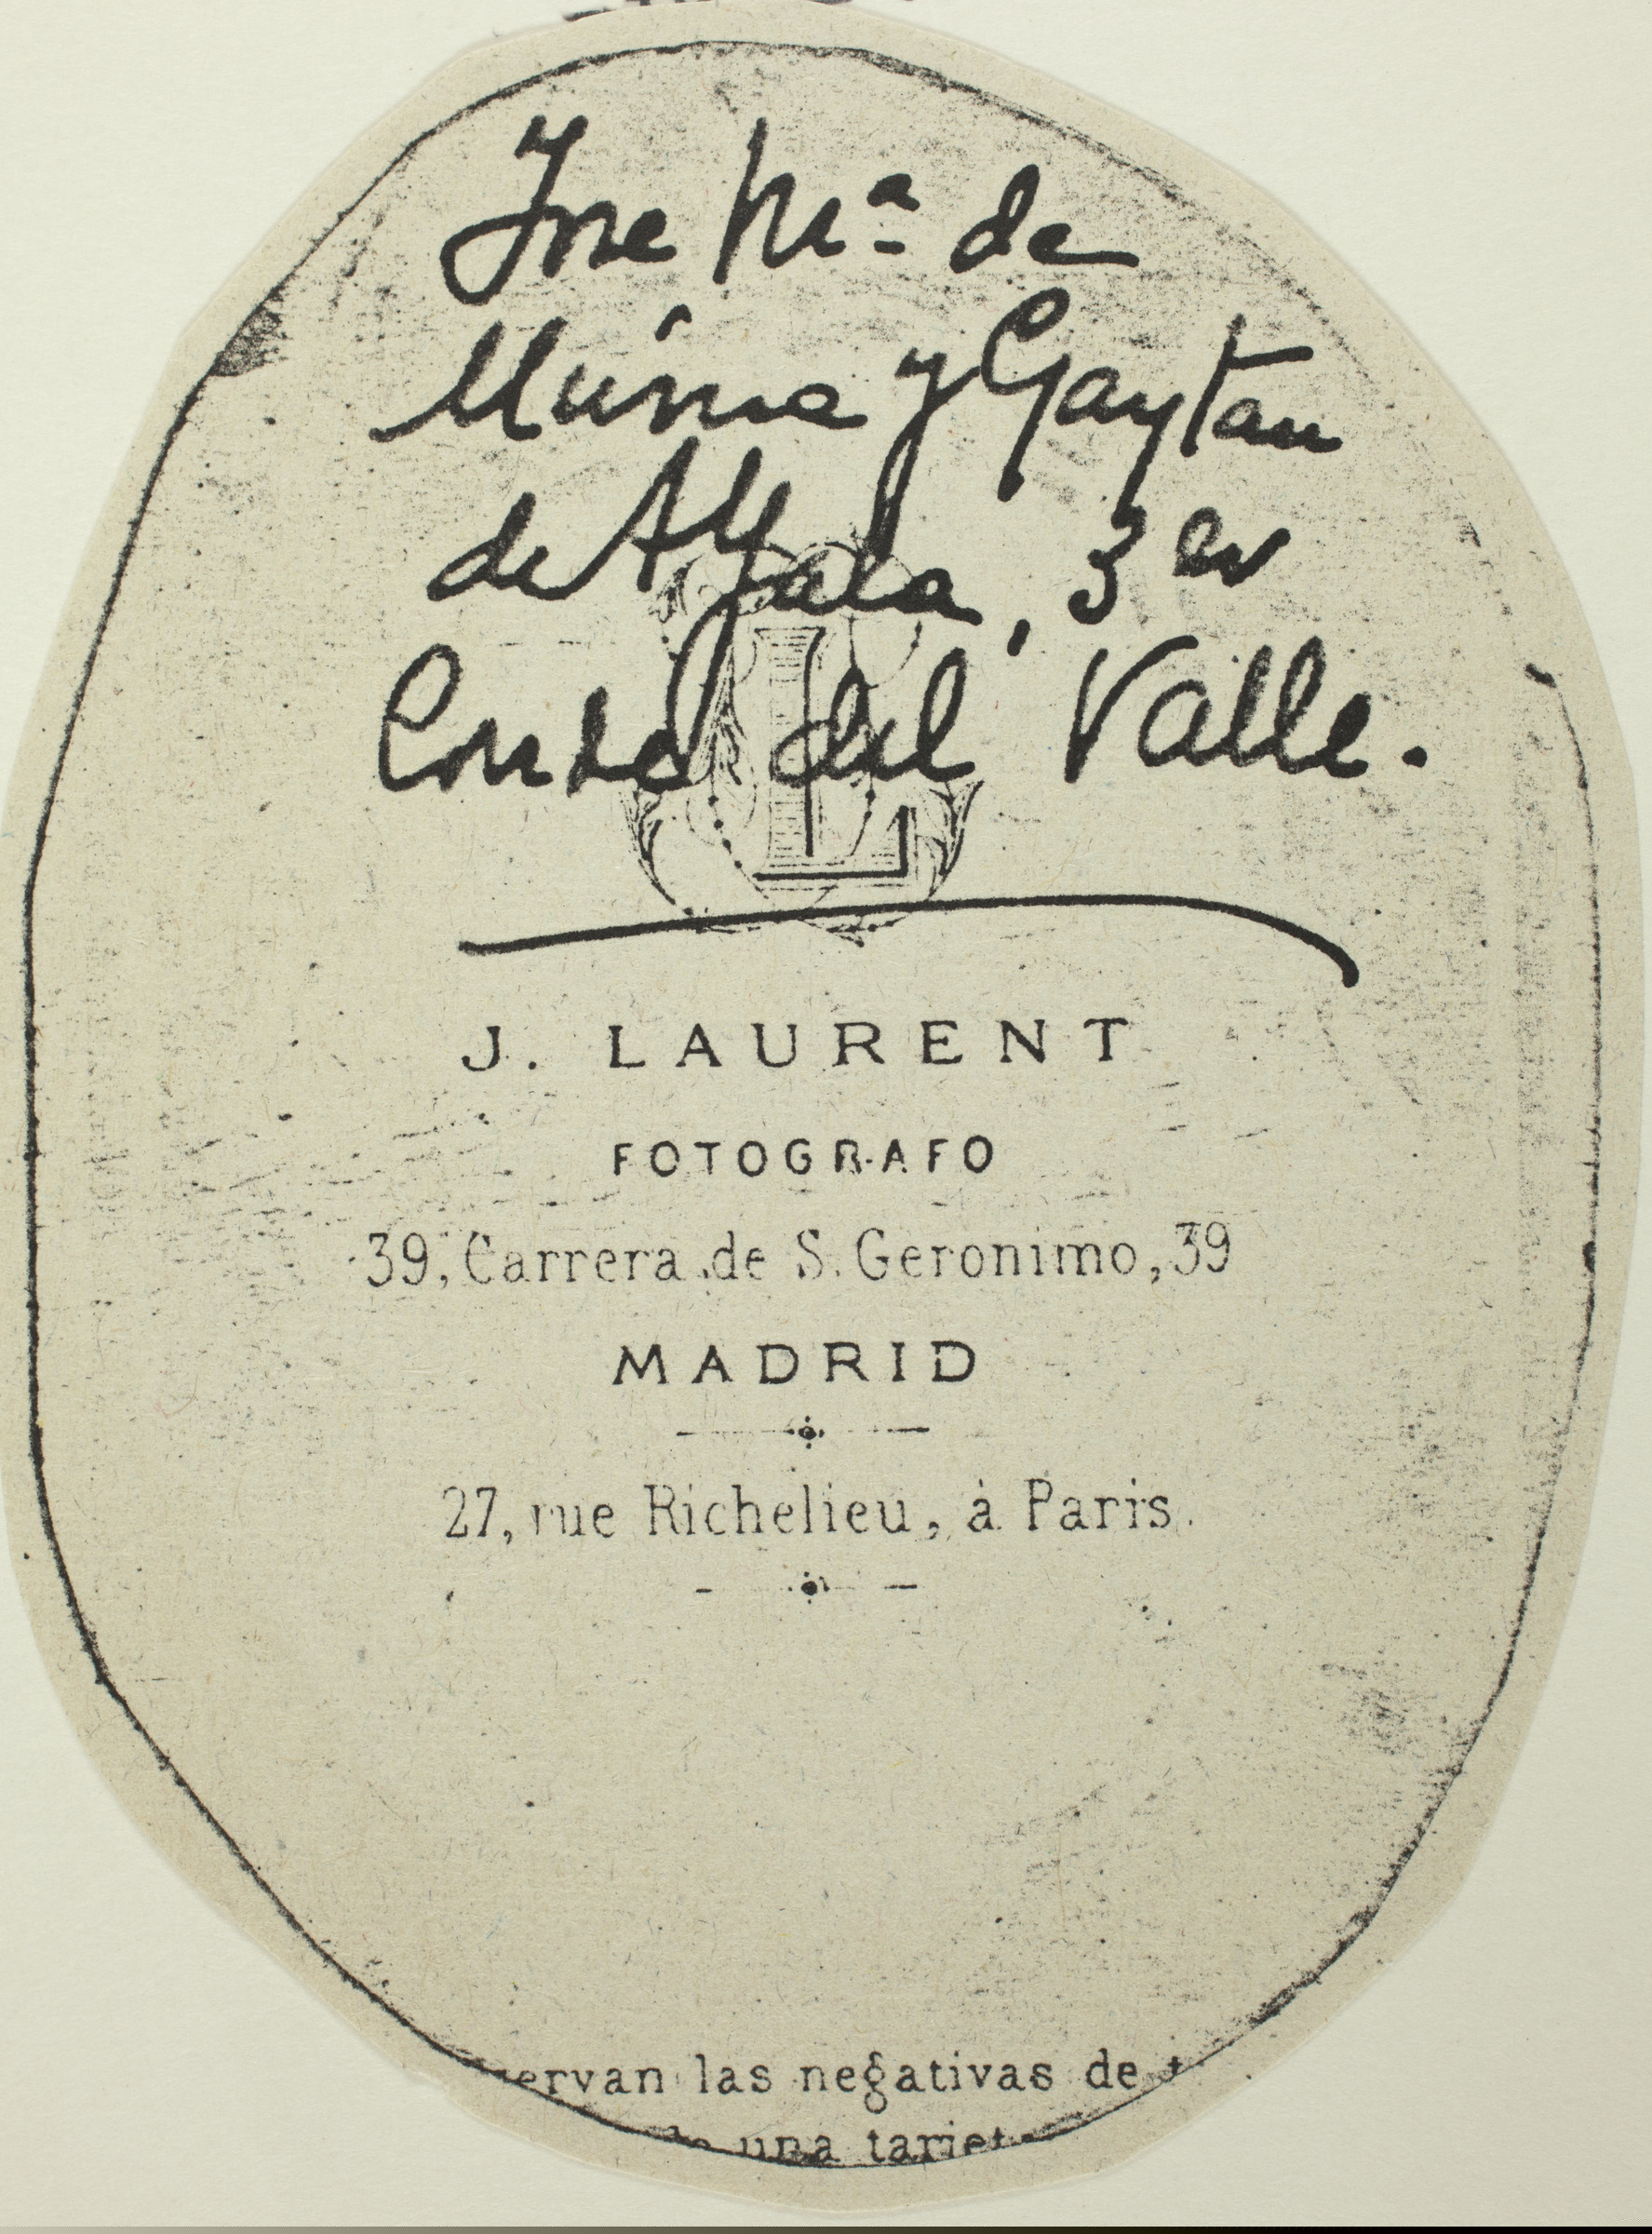 Jose Mª de
Murúa y Gaytan
de Ayala, 3er
Conde del Valle.
L
J. LAURENT
FOTOGRAFO
39, Carrera de S. Geronimo, 39
MADRID
27, rue Richelieu, à Paris.
servan las negativas de t
de una tarjet